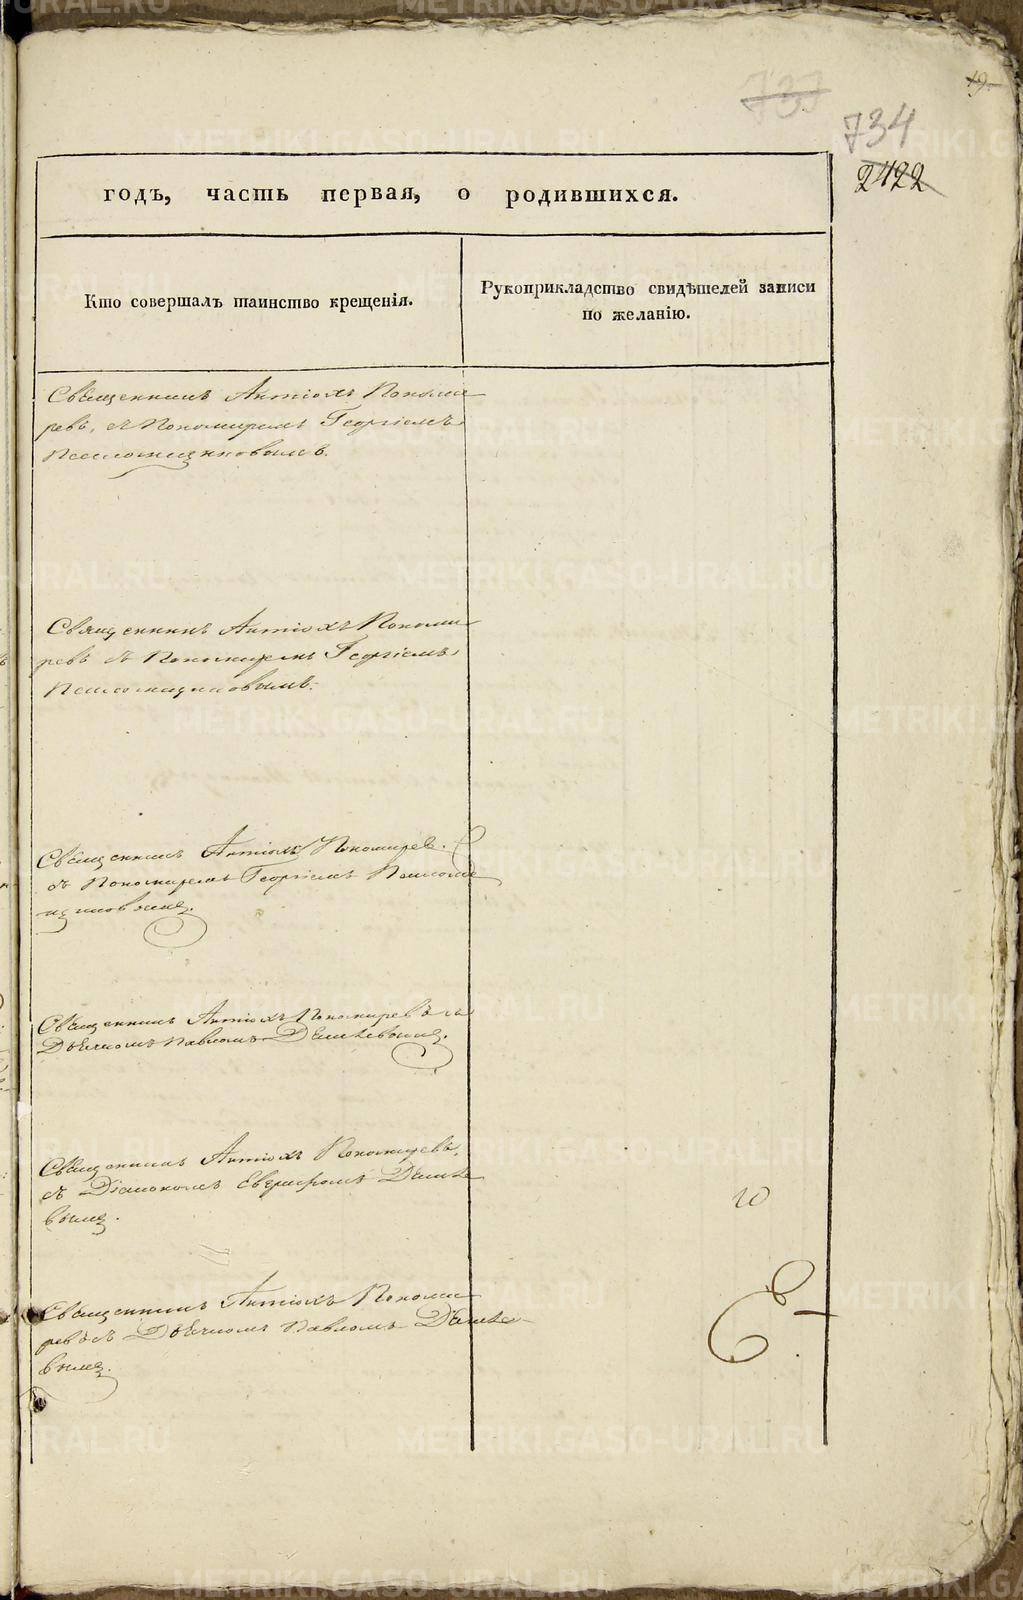 19.
737
734
2422
годъ, часть первая, о родившихся.
Кто совершалъ таинство крещенія.
Рукоприкладство свидѣтелей записи
по желанію.
Священникъ Антіохъ Понома
ревъ, съ Пономаремъ Георгіемъ

Священникъ Антіохъ Понома
ревъ съ Пономаремъ Георгіемъ

Священникъ Антіохъ Пономаревъ.
съ Пономаремъ Георгіемъ

Священникъ Антіохъ Пономаревъ съ
Дьячкомъ Павломъ
Священникъ Антіохъ Пономаревъ,
съ Діакономъ
вымъ.
Священникъ Антіохъ Понома
ревъ съ Дьячкомъ Павломъ
вымъ.
METRIKI.GASO-URAL.RU